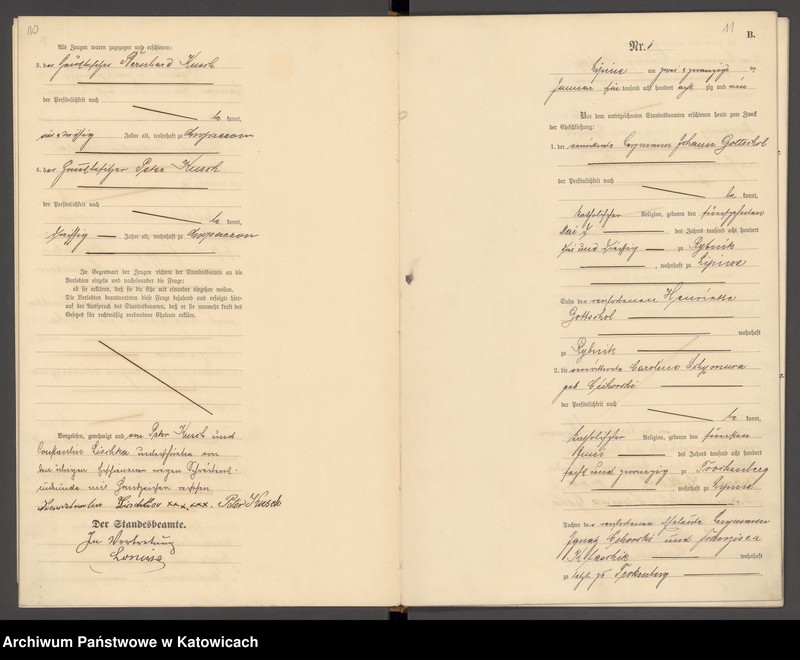 10
Als Zeugen waren zugezogen und erschienen:
3. der Häuslerssohn Bernhard Kusch
der Persönlichkeit nach
be kannt,
Jahre alt, wohnhaft zu
4. der Peter Kusch
der Persönlichkeit nach
be kannt,
dreißig Jahre alt, wohnhaft zu
In Gegenwart der Zeugen richtete der Standesbeamte an die
Verlobten einzeln und nacheinander die Frage:
ob sie erklären, daß sie die Ehe mit einander eingehen wollen.
Die Verlobten beantworteten diese Frage bejahend und erfolgte hier-
auf der Ausspruch des Standesbeamten, daß er sie nunmehr kraft des
Gesetzes für rechtmäßig verbundene Eheleute erkläre.
Vorgelesen, genehmigt und von Peter Kusch und
Constantin Lischka unterschrieben von
den übrigen Erschienenen wegen Schreibens-
unkunde mit Handzeichen versehen
xxx xxx. Peter Kusch
Der Standesbeamte.
In Vertretung
11
B.
Nr. 1
Lipine am zwei u zwanzigsten
Januar tausend acht hundert acht zig und neun
Vor dem unterzeichneten Standesbeamten erschienen heute zum Zweck
der Eheschließung:
1. der verwittwete Bergmann Johann Gottschol
der Persönlichkeit nach
be kannt,
katholischer Religion, geboren den fünfzehnten
Mai des Jahres tausend acht hundert
drei und dreißig zu Rybnik
, wohnhaft zu Lipine
Sohn des verstorbenen
Gottschol
wohnhaft
zu Rybnik
2. die verwittwete Carolina Schymura
geb.
der Persönlichkeit nach
be kannt,
katholischer Religion, geboren den fünften
Juni des Jahres tausend acht hundert
sechs und zwanzig zu Trockenberg
, wohnhaft zu Lipine
Tochter der verstorbenen Eheleute Bergmann
Ignatz und Franziska
wohnhaft
zu letzt zu Trockenberg
Archiwum Państwowe w Katowicach